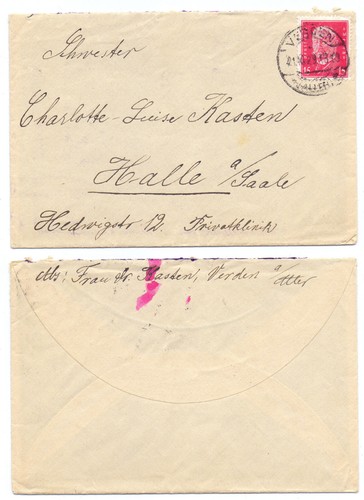 Schwester
Charlotte-Luise Kasten
Halle a/Saale
Hedwigstr 12. Privatklinik
VERDEN
(ALLER)
15
Abs: Frau Dr. Kasten, Verden a/Aller